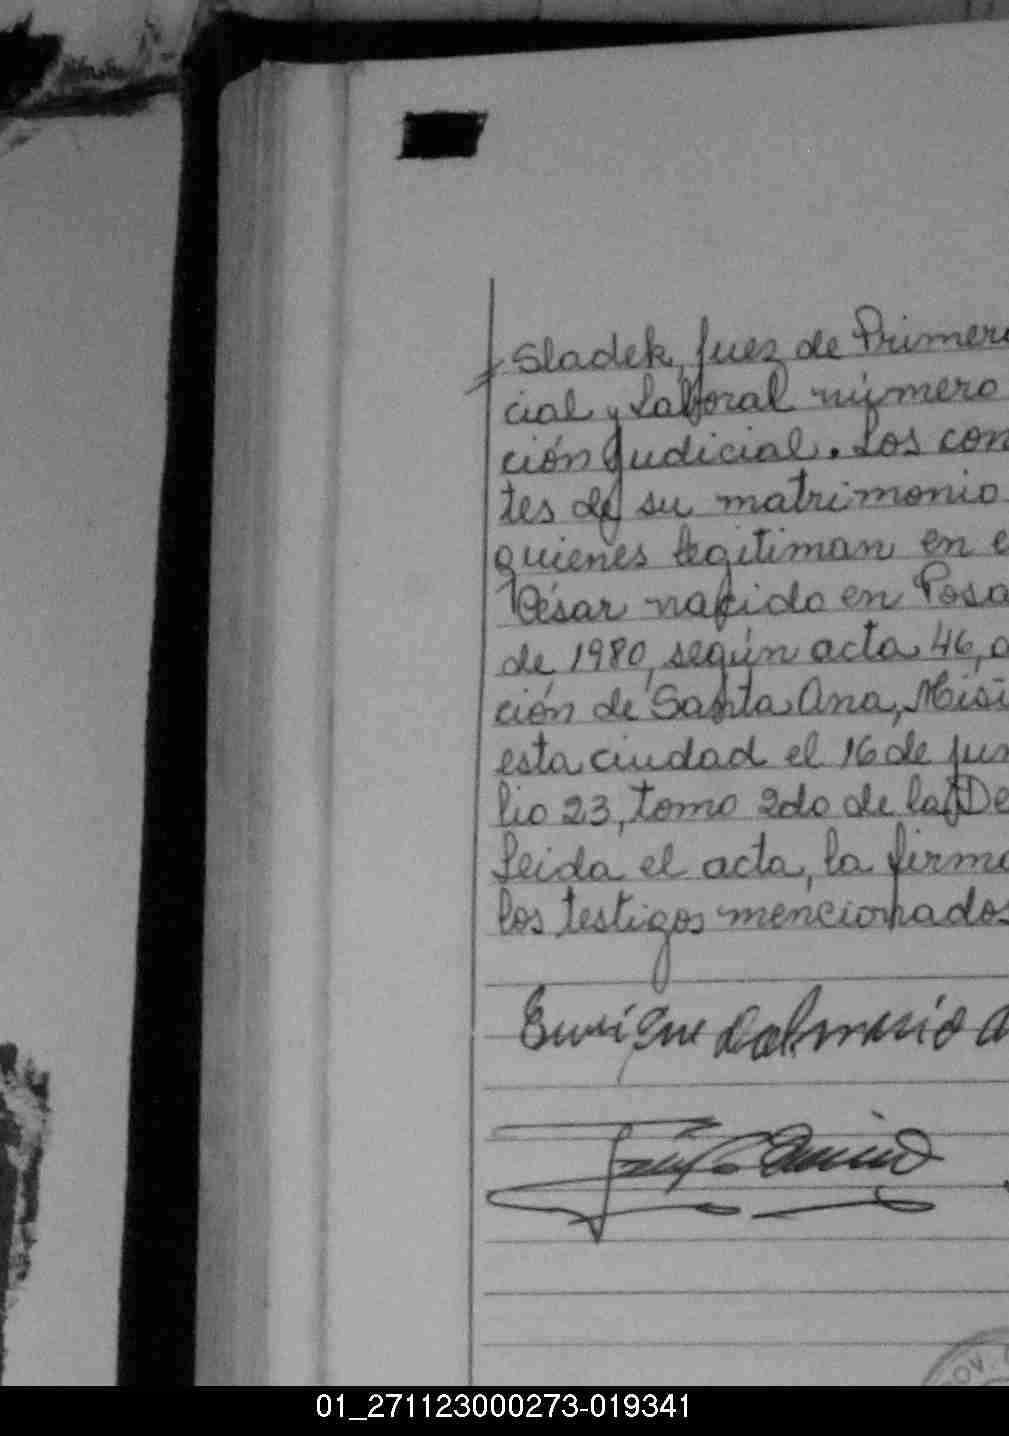 Sladek, Juez de Primera
cial y Laboral número
ción Judicial. Los con
tes de su matrimonio
quienes legitiman en e
César nacido en Posa
de 1980, según acta 46, d
ción de Santa Ana, Misi
esta ciudad el 16 de jun
lio 23, tomo 2do de la De
Leida el acta, la firma
los testigos mencionados
Enrique Dalmacio A
OV.
01_271123000273-019341